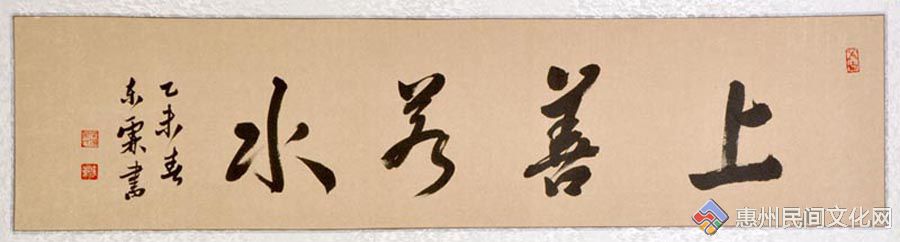 上善若水
乙未春
东霖书
惠州民间文化网